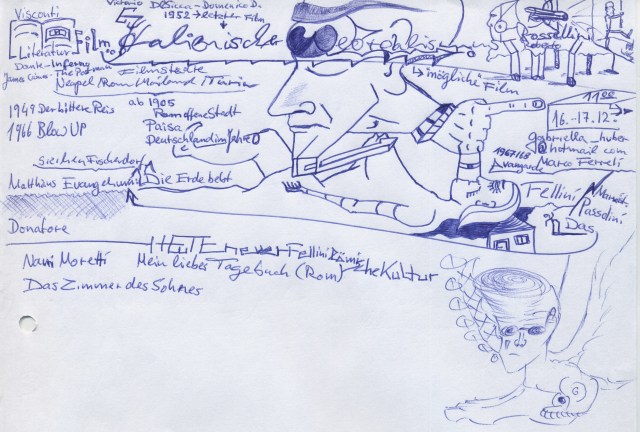 Visconti
Vittorio DeSicca - Domenico D.
1952 letzter Film
Film Italienischer Neorealismus
Rossellini
Roberto
Literatur
Dante - Inferno
James Cain - The Postman
Filmstädte
Neapel/Rom/Mailand/Turin
mögliche Film
1949 Der bittere Reis
1966 Blow UP
ab 1905
Rom offene Stadt
Paisa
Deutschland im Jahre 0
11 00
16.-17.12.
gabriella_huber
@hotmail.com
Marco Ferreri
1967/68
Avangarde
sizilien Fischerdorf
Matthäus Evangelium
Die Erde bebt
Fellini
Pasolini
Das
Donatore
HEUTE neuer Fellini Römische Kultur
Nani Moretti Mein liebes Tagebuch (Rom)
Das Zimmer des Sohnes